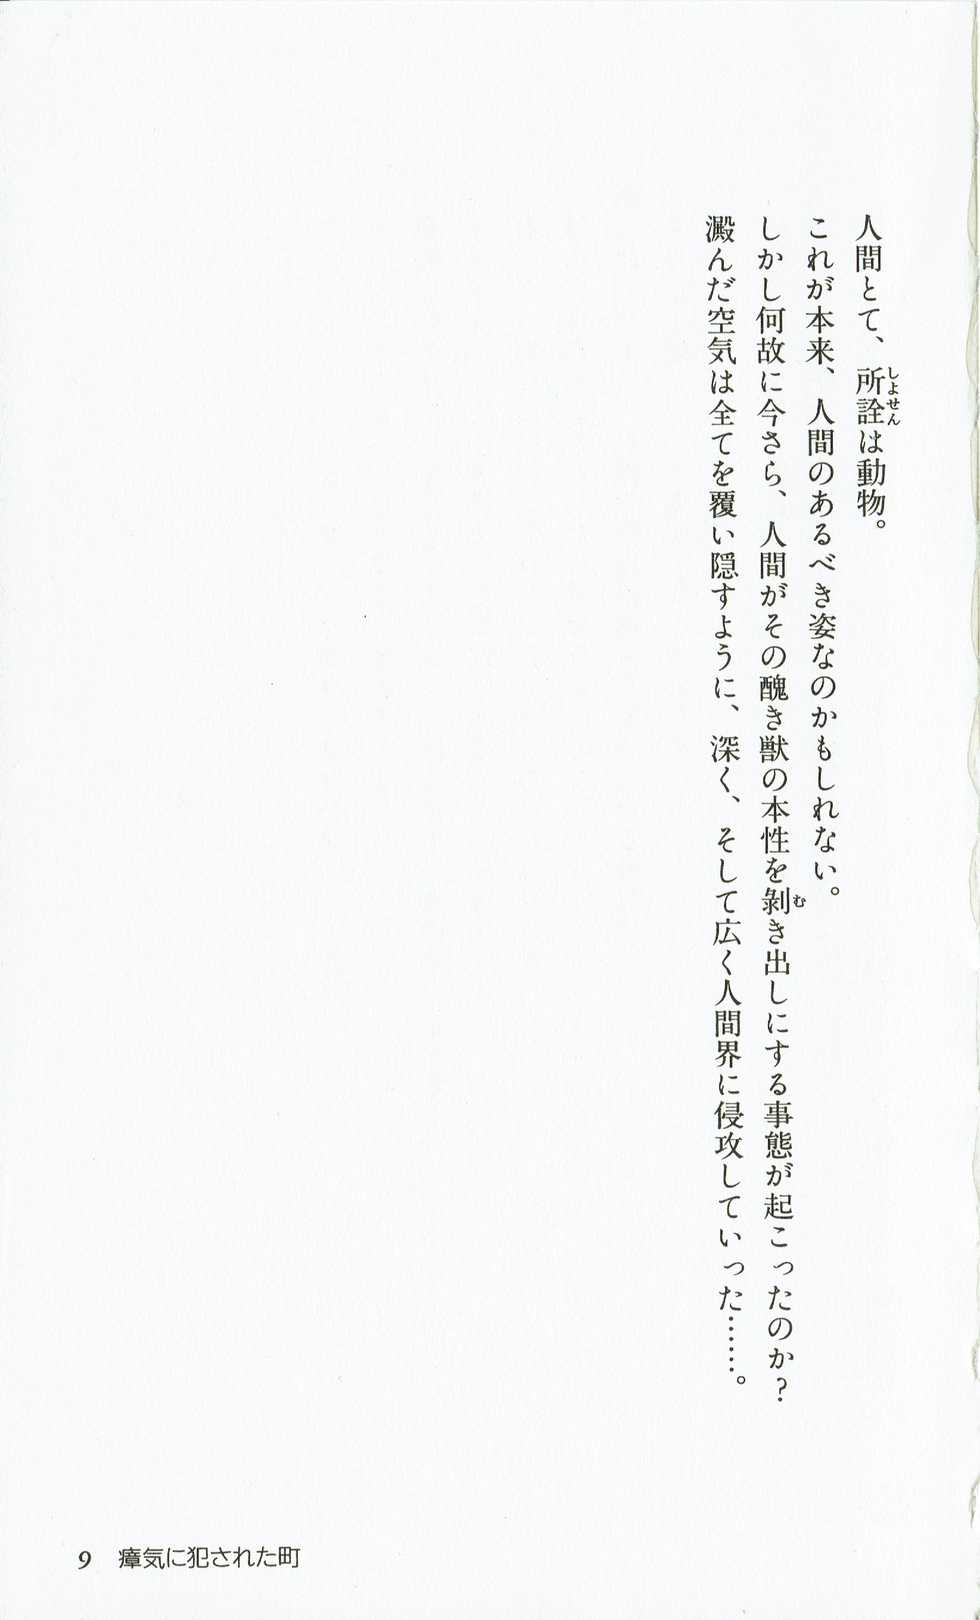 人間とて、所詮は動物。
これが本来、人間のあるべき姿なのかもしれない。
しかし何故に今さら、人間がその醜き獣の本性を剝き出しにする事態が起こったのか？
澱んだ空気は全てを覆い隠すように、深く、そして広く人間界に侵攻していった……。
しよせん
む
9　瘴気に犯された町